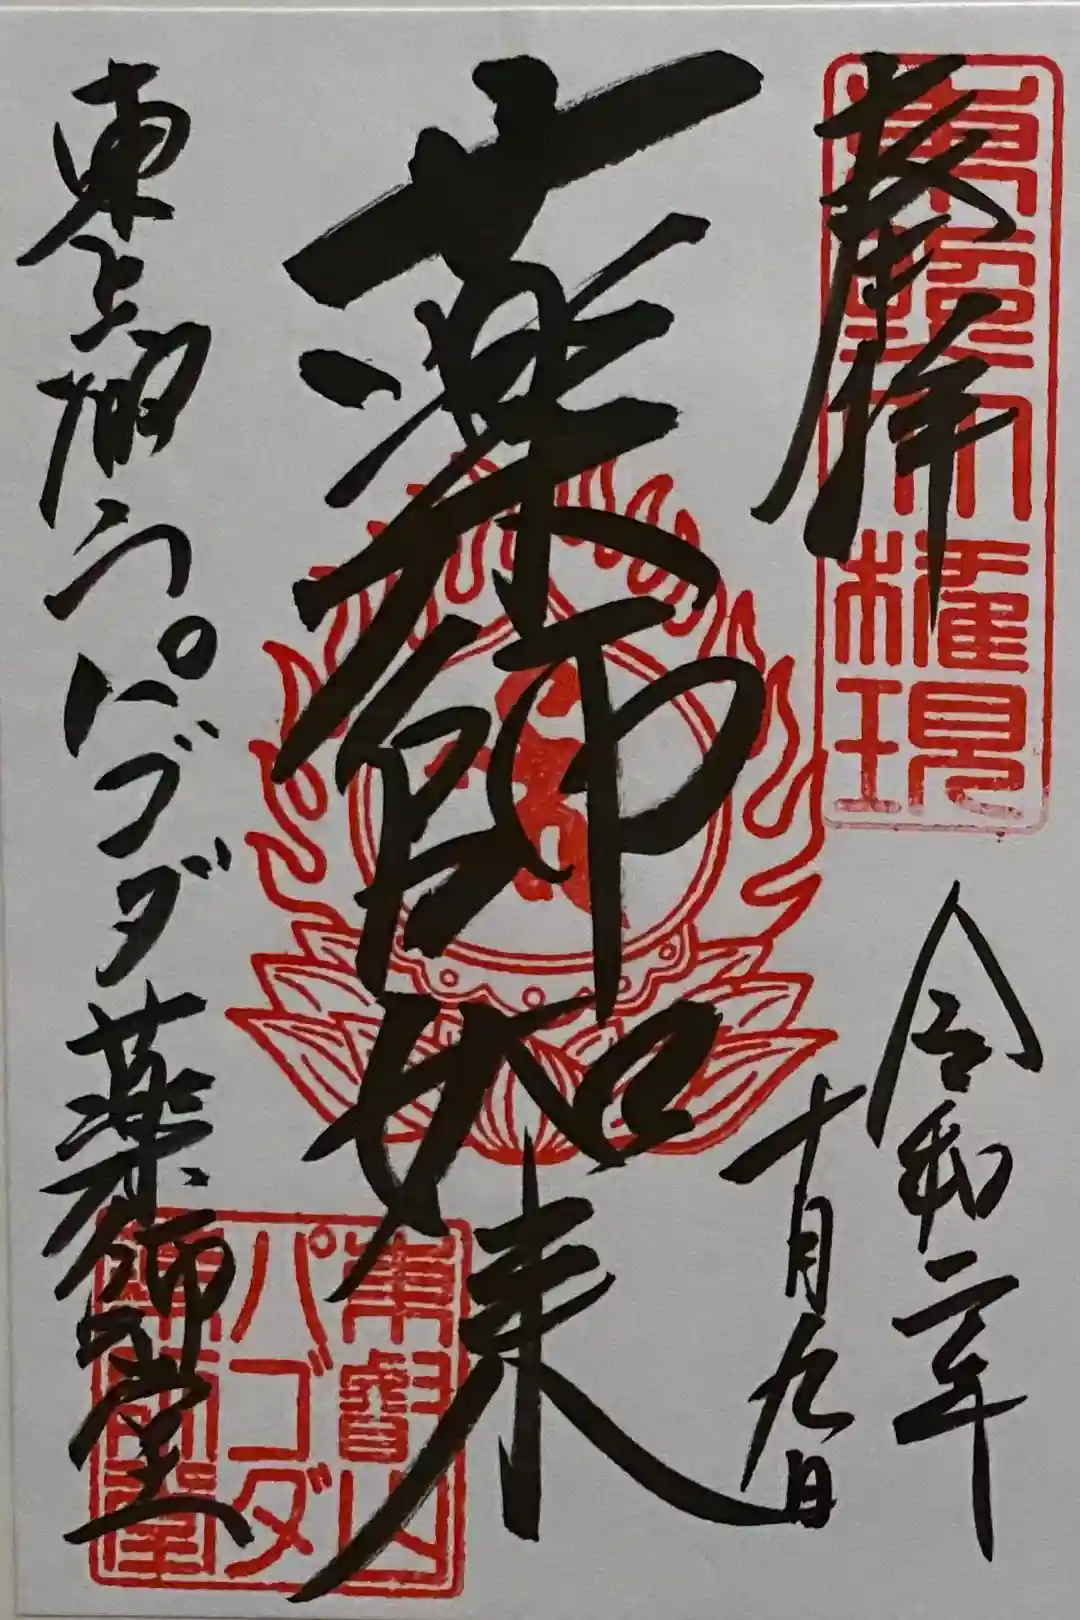 奉拝
令和二年
十月九日
薬師如来
東上野 パゴダ薬師堂
東照大権現
東叡山
パゴダ
薬師堂